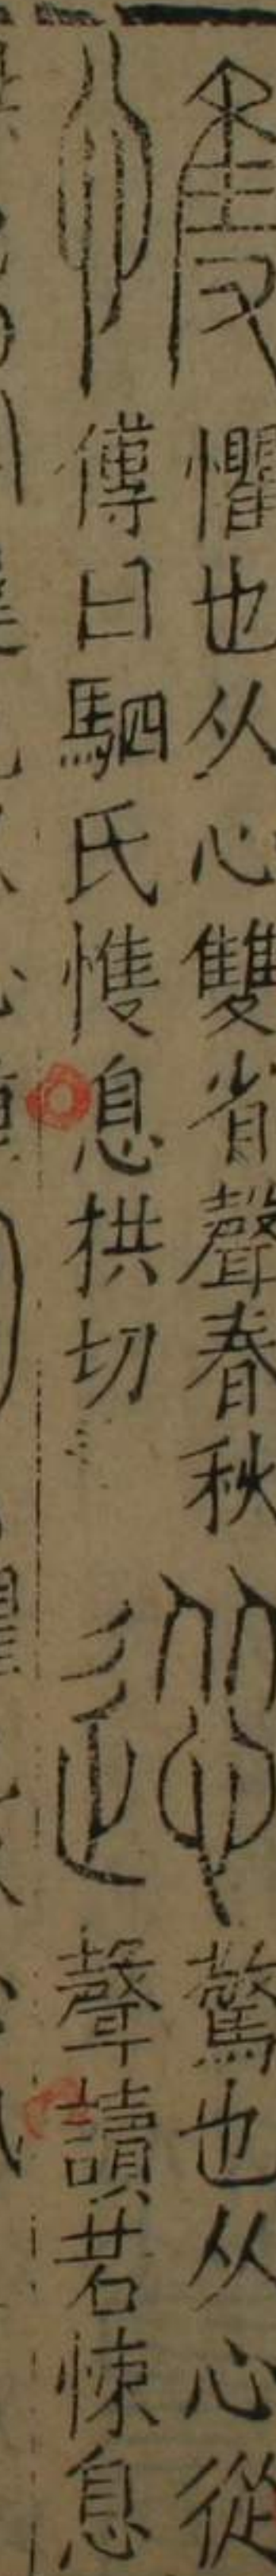 愯
懼也从心雙省聲春秋
傳曰駟氏愯息拱切
慫
驚也从心從
聲讀若悚息